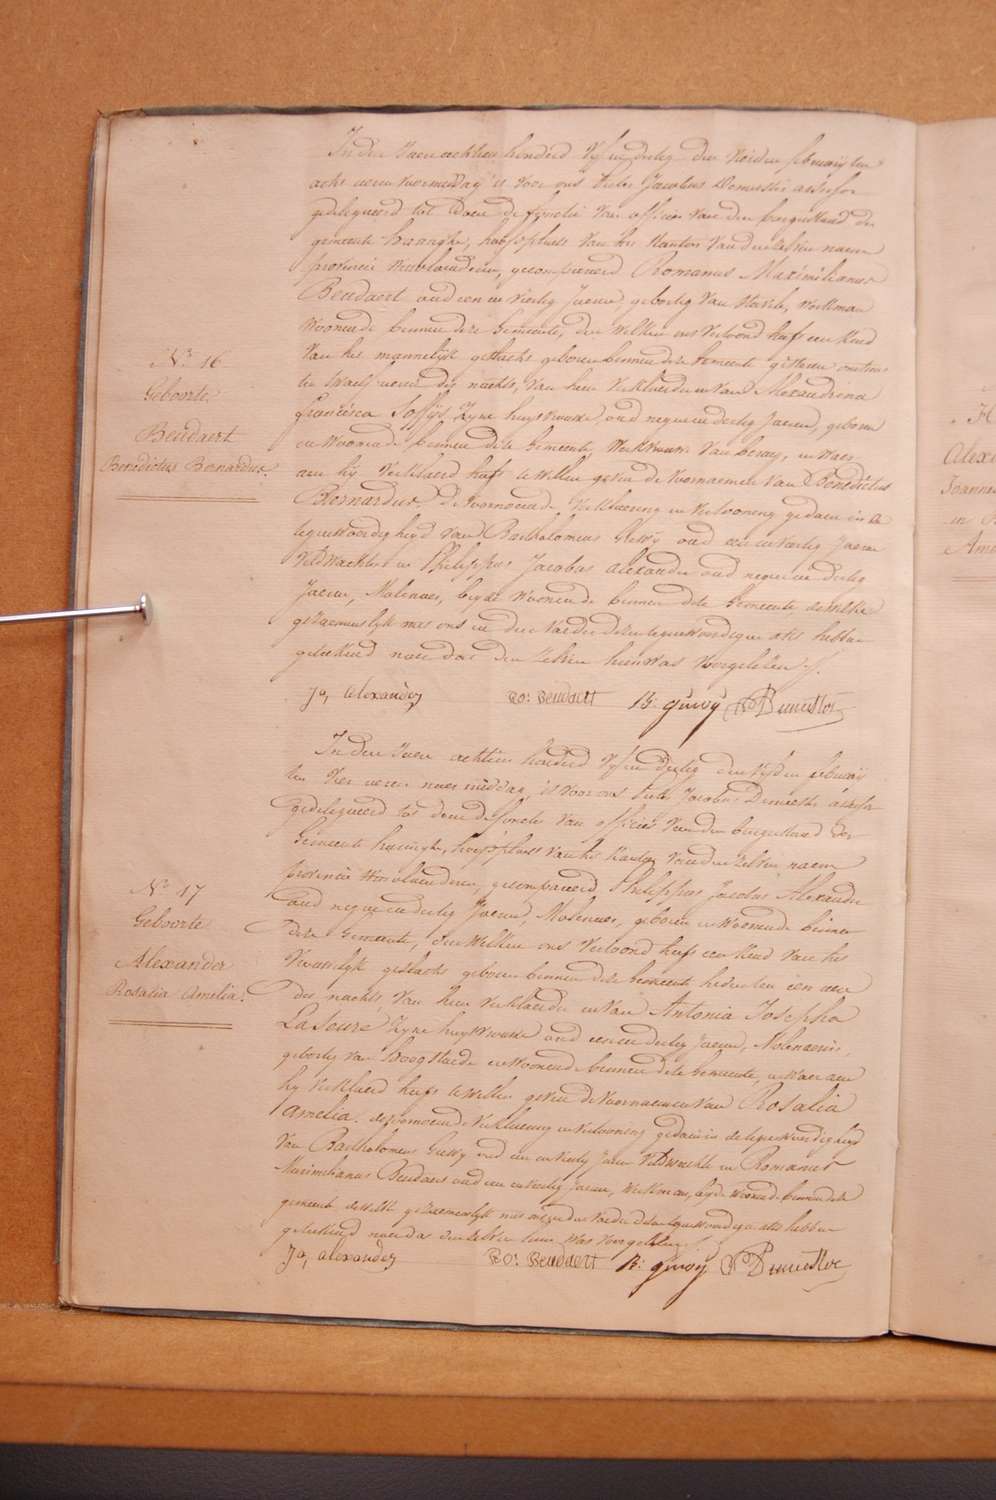 Nr. 16
Geboorte
Beudaert
Benedictus Bernardus.
In den Jaere achttien honderd Vyf en dertig den Vierden february ten
acht ueren voormiddag is voor ons Pieter Jacobus Demeestre assessor
gedelegueerd tot doen de functie van officier van den burgerstand der
gemeente haringhe, hoofdplaets van het Kanton van denzelven naem
provincie Westvlaenderen, gecompareerd Romanus Maximilianus
Beudaert oud een en veertig Jaeren, geboortig van Stavele, werkman
woonende binnen deze Gemeente, den welken ons vertoond heeft een kind
van het mannelyk geslacht geboren binnen deze Gemeente gisteren omtrent
ten twaelf ueren des nachts, van hem verklaerder en van Alexandrina
francisca Soffys, Zyne huysvrouwe, oud negen en dertig Jaeren, geboren
en woonende binnen deze Gemeente, Werkvrouw van beroep, en waer
aen hy verklaerd heeft te willen geven de voornaemen van Benedictus
Bernardus. De voornoemde verklaering en vertooning gedaen in de
tegenwoordigheyd van Bartholomeus Giewy oud een en veertig Jaeren
Veldwachter en Philippus Jacobus Alexander oud negen en dertig
Jaeren, Molenaer, beyde woonende binnen deze Gemeente, dewelke
gezaemenlyk met ons en den vader dezen tegenwoordigen acte hebben
geteekend naer dat den zelven hun was voorgelezen
Ja, alexander Ro: Beudaert B: giewy P Demeestre
Nr. 17
Geboorte
Alexander
Rosalia Amelia.
In den Jaere achttien honderd Vyf en dertig den Vyfden february
ten vier ueren naer middag, is voor ons Pieter Jacobus Demeestre assessor
gedelegueerd tot doen de functie van officier van den burgerstand der
Gemeente haringhe, hoofdplaets van het Kanton van denzelven naem
provincie Westvlaenderen, gecompareerd Philippus Jacobus Alexander
oud negen en dertig Jaeren, Molenaer, geboren en woonende binnen
deze Gemeente, den welken ons vertoond heeft een kind van het
Vrouwelyk geslacht geboren binnen deze Gemeente heden ten een uer
des nachts, van hem verklaerder en van Antonia Josepha
Lafoure Zyne huysvrouwe oud een en dertig Jaeren, Molenaerin,
geboortig van hoogstaede en woonende binnen deze Gemeente, en waer aen
hy verklaerd heeft te willen geven de voornaemen van Rosalia
Amelia. de voornoemde verklaering en vertooning gedaen in de tegenwoordigheyd
van Bartholomeus Giewy oud een en veertig Jaeren Veldwachter en Romanus
Maximilianus Beudaert oud een en veertig Jaeren, Werkman, beyde woonende binnen deze
gemeente dewelke gezaemenlyk met ons en den vader dezen tegenwoordigen acte hebben
geteekend naer dat den zelven hun was voorgelezen
Ja, alexander Ro: Beudaert B: giewy P Demeestre
Alex
Joanne